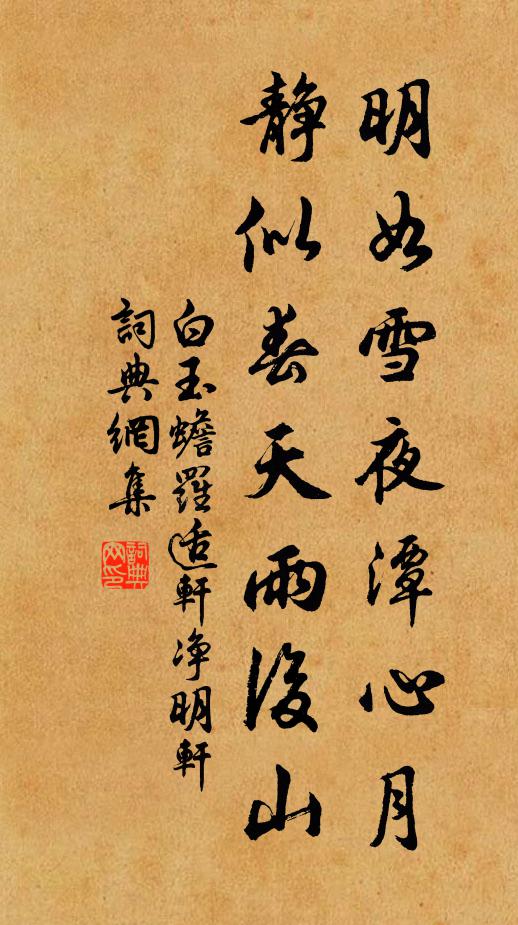 明如雪夜潭心月
靜似春天雨後山
白玉蟾羅适軒净明軒
詞典網集
詞典
网印